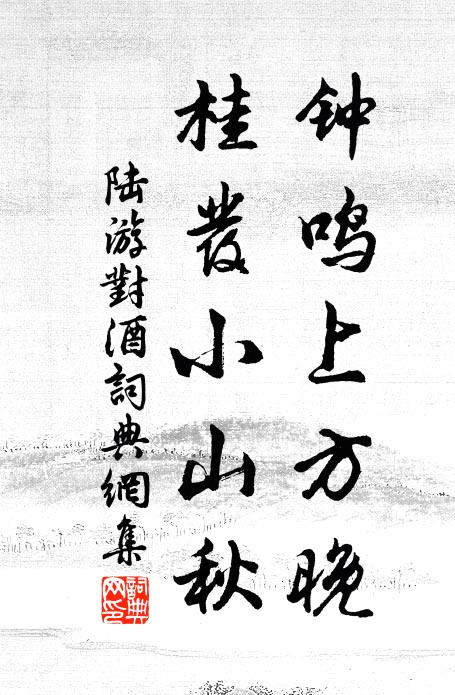 钟鸣上方晚
桂發小山秋
陆游對酒詞典網集
詞典网印